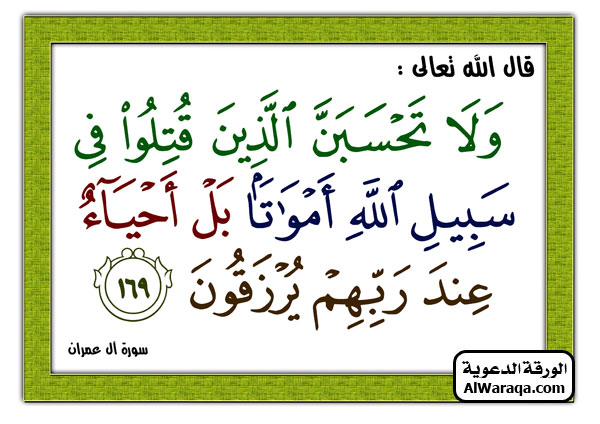 قال الله تعالى :
وَلَا تَحْسَبَنَّ ٱلَّذِينَ قُتِلُوا۟ فِى
سَبِيلِ ٱللَّهِ أَمْوَٰتًۢا بَلْ أَحْيَآءٌ
عِندَ رَبِّهِمْ يُرْزَقُونَ ١٦٩
سورة آل عمران
الورقة الدعوية
AlWaraqa.com